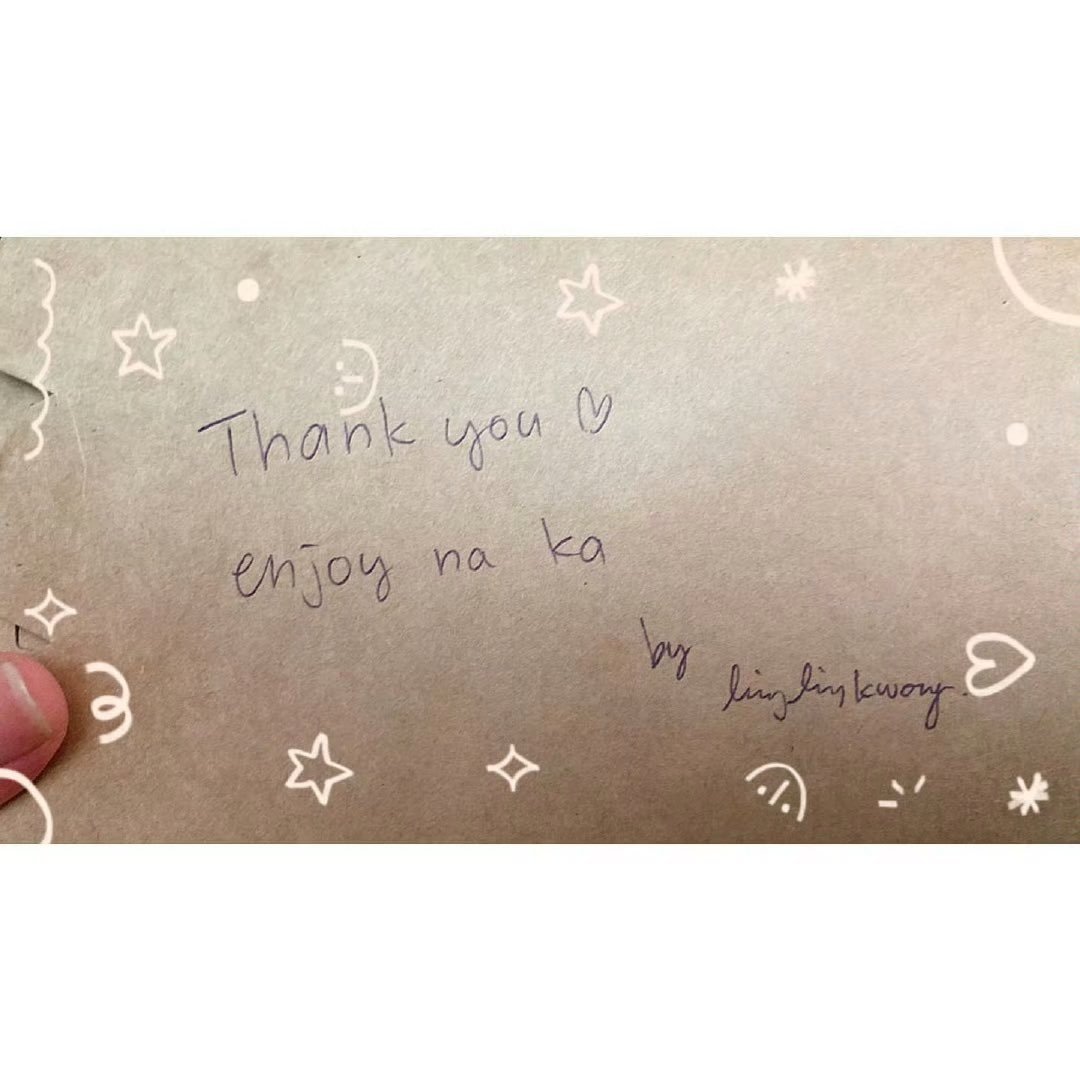 Thank you ♡
enjoy na ka
by
linglingkwong.